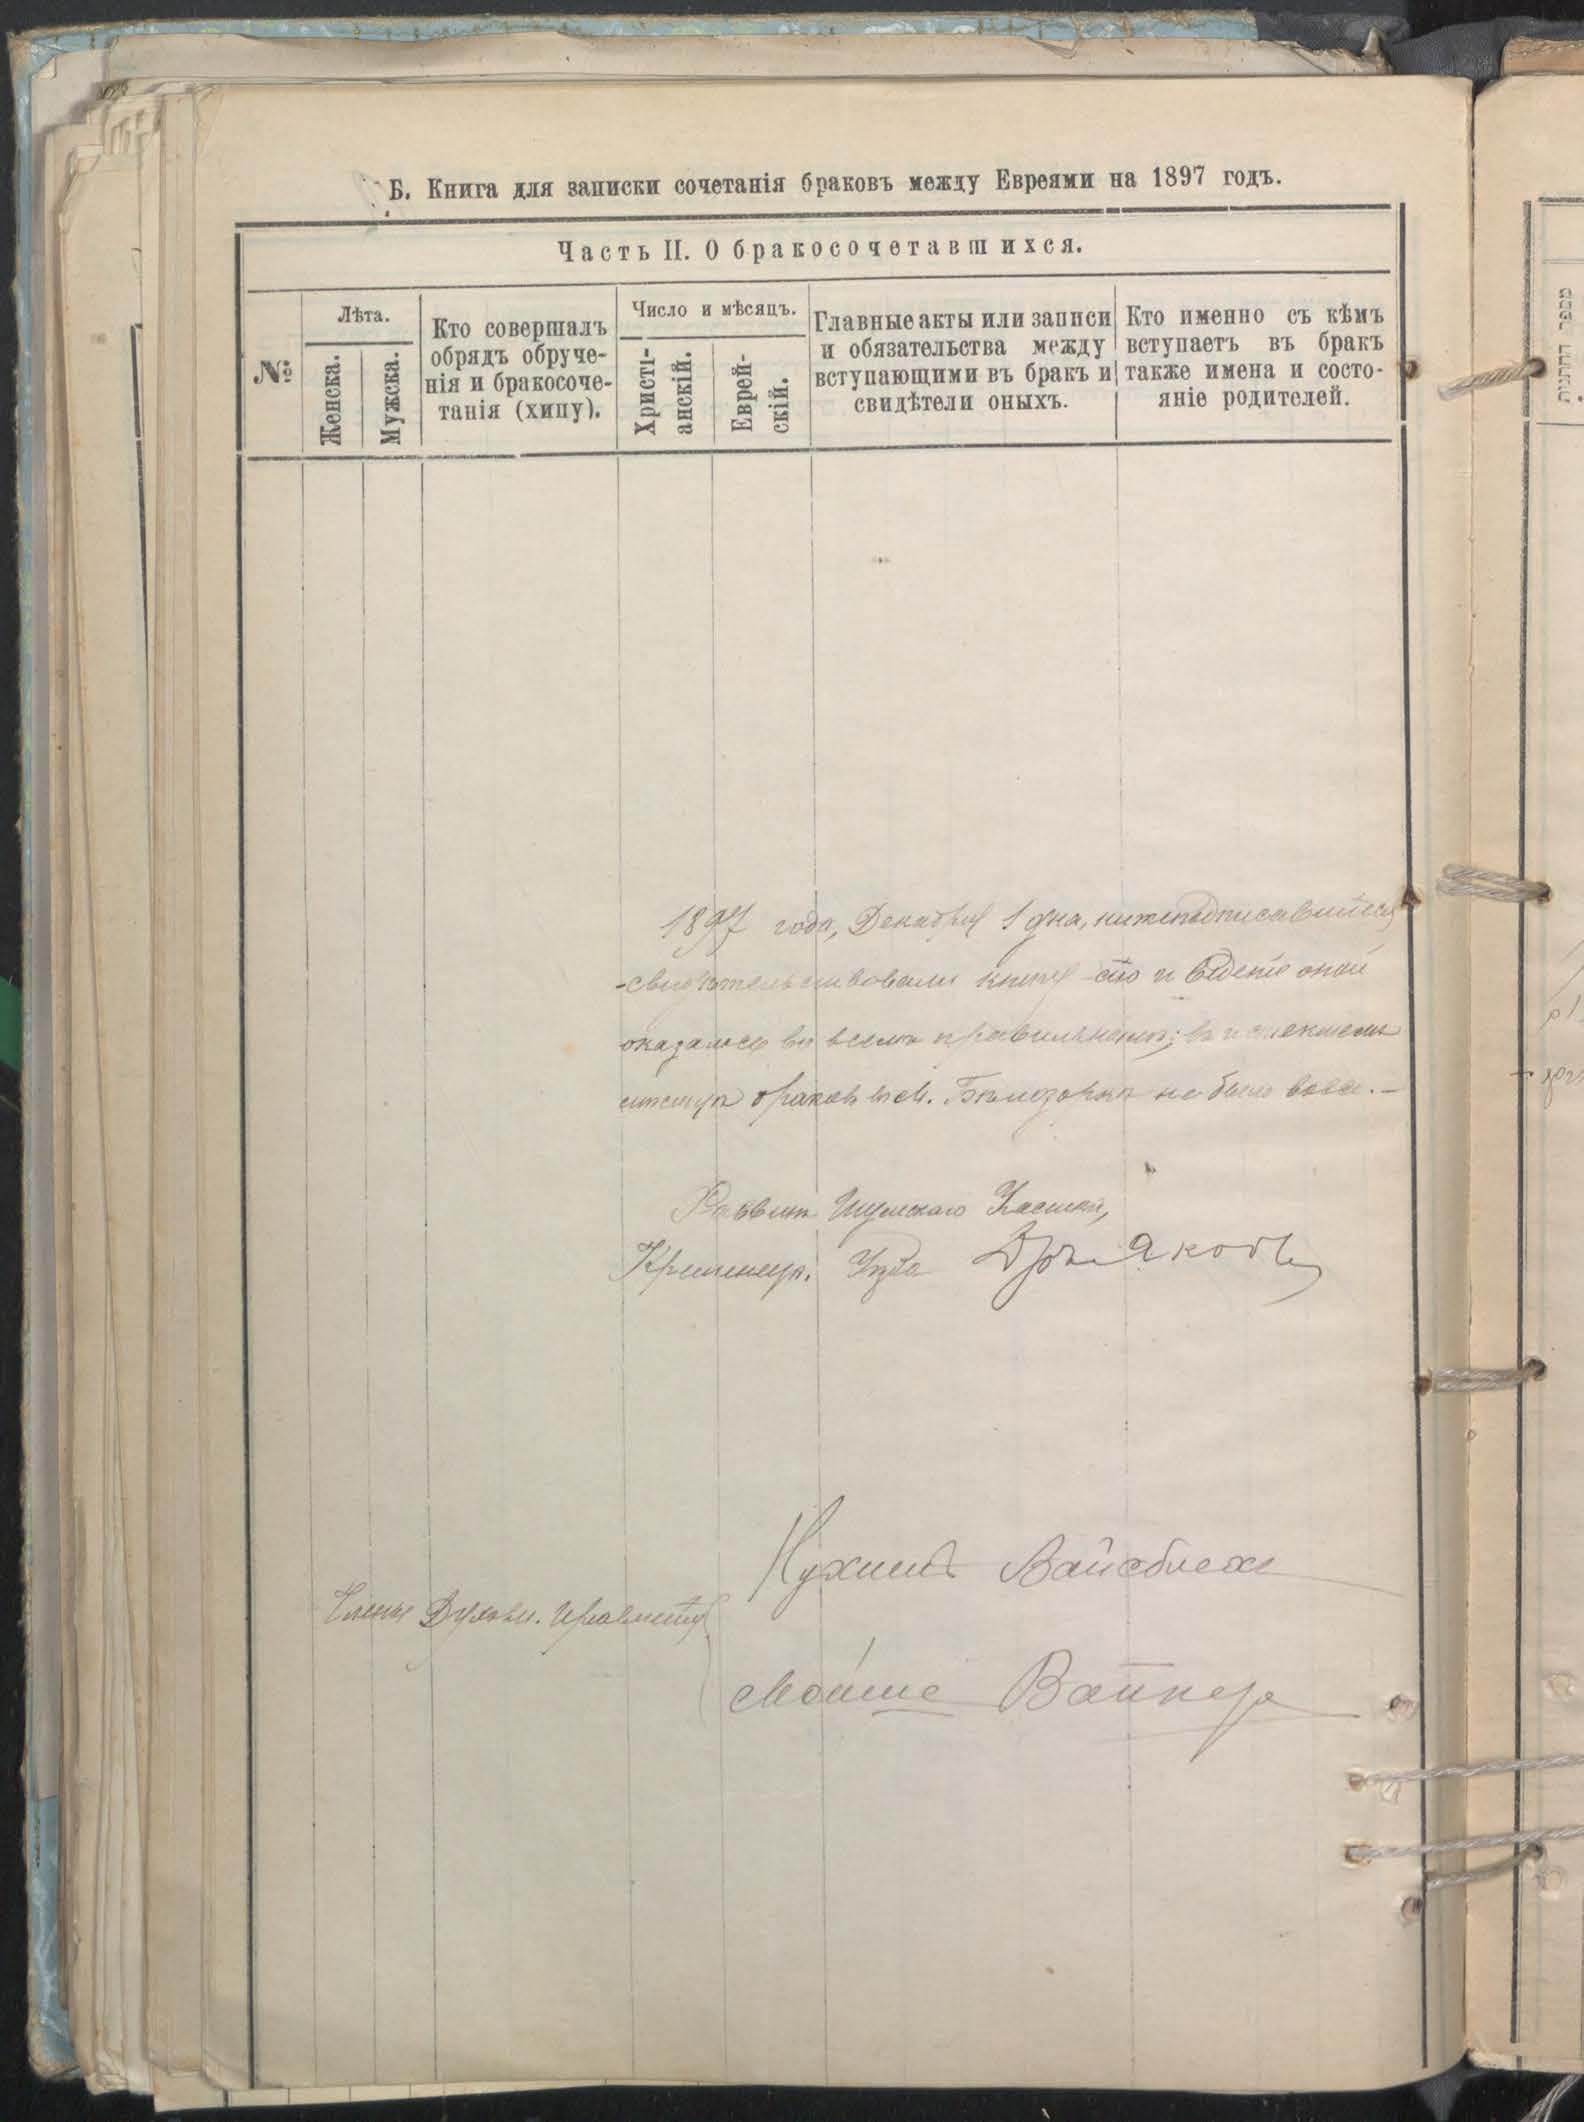 Б. Книга для записки сочетанія браковъ между Евреями на 1897 годъ.
Часть II. О бракосочетавшихся.
№
Лѣта.
Женска.
Мужска.
Кто совершалъ
обрядъ обруче-
нія и бракосоче-
танія (хипу).
Число и мѣсяцъ.
Христі-
анскій.
Еврей-
скій.
Главные акты или записи
и обязательства между
вступающими въ бракъ и
свидѣтели оныхъ.
Кто именно съ кѣмъ
вступаетъ въ бракъ
также имена и состо-
яніе родителей.
1897 года, Декабря 1 дня, нижеподписавшійся
свидѣтельствовали книгу сію и веденіе оной
оказалось во всемъ правильнымъ; въ истекшемъ
мѣсяцѣ браковъ въ м. Бѣлозоркѣ не было вовсе. —
Раввинъ Шумскаго Участка,
Кременецк. Уѣзда
Члены Духовн. Правленія
Нухимъ Вайсблехе
Мойше Вайнер